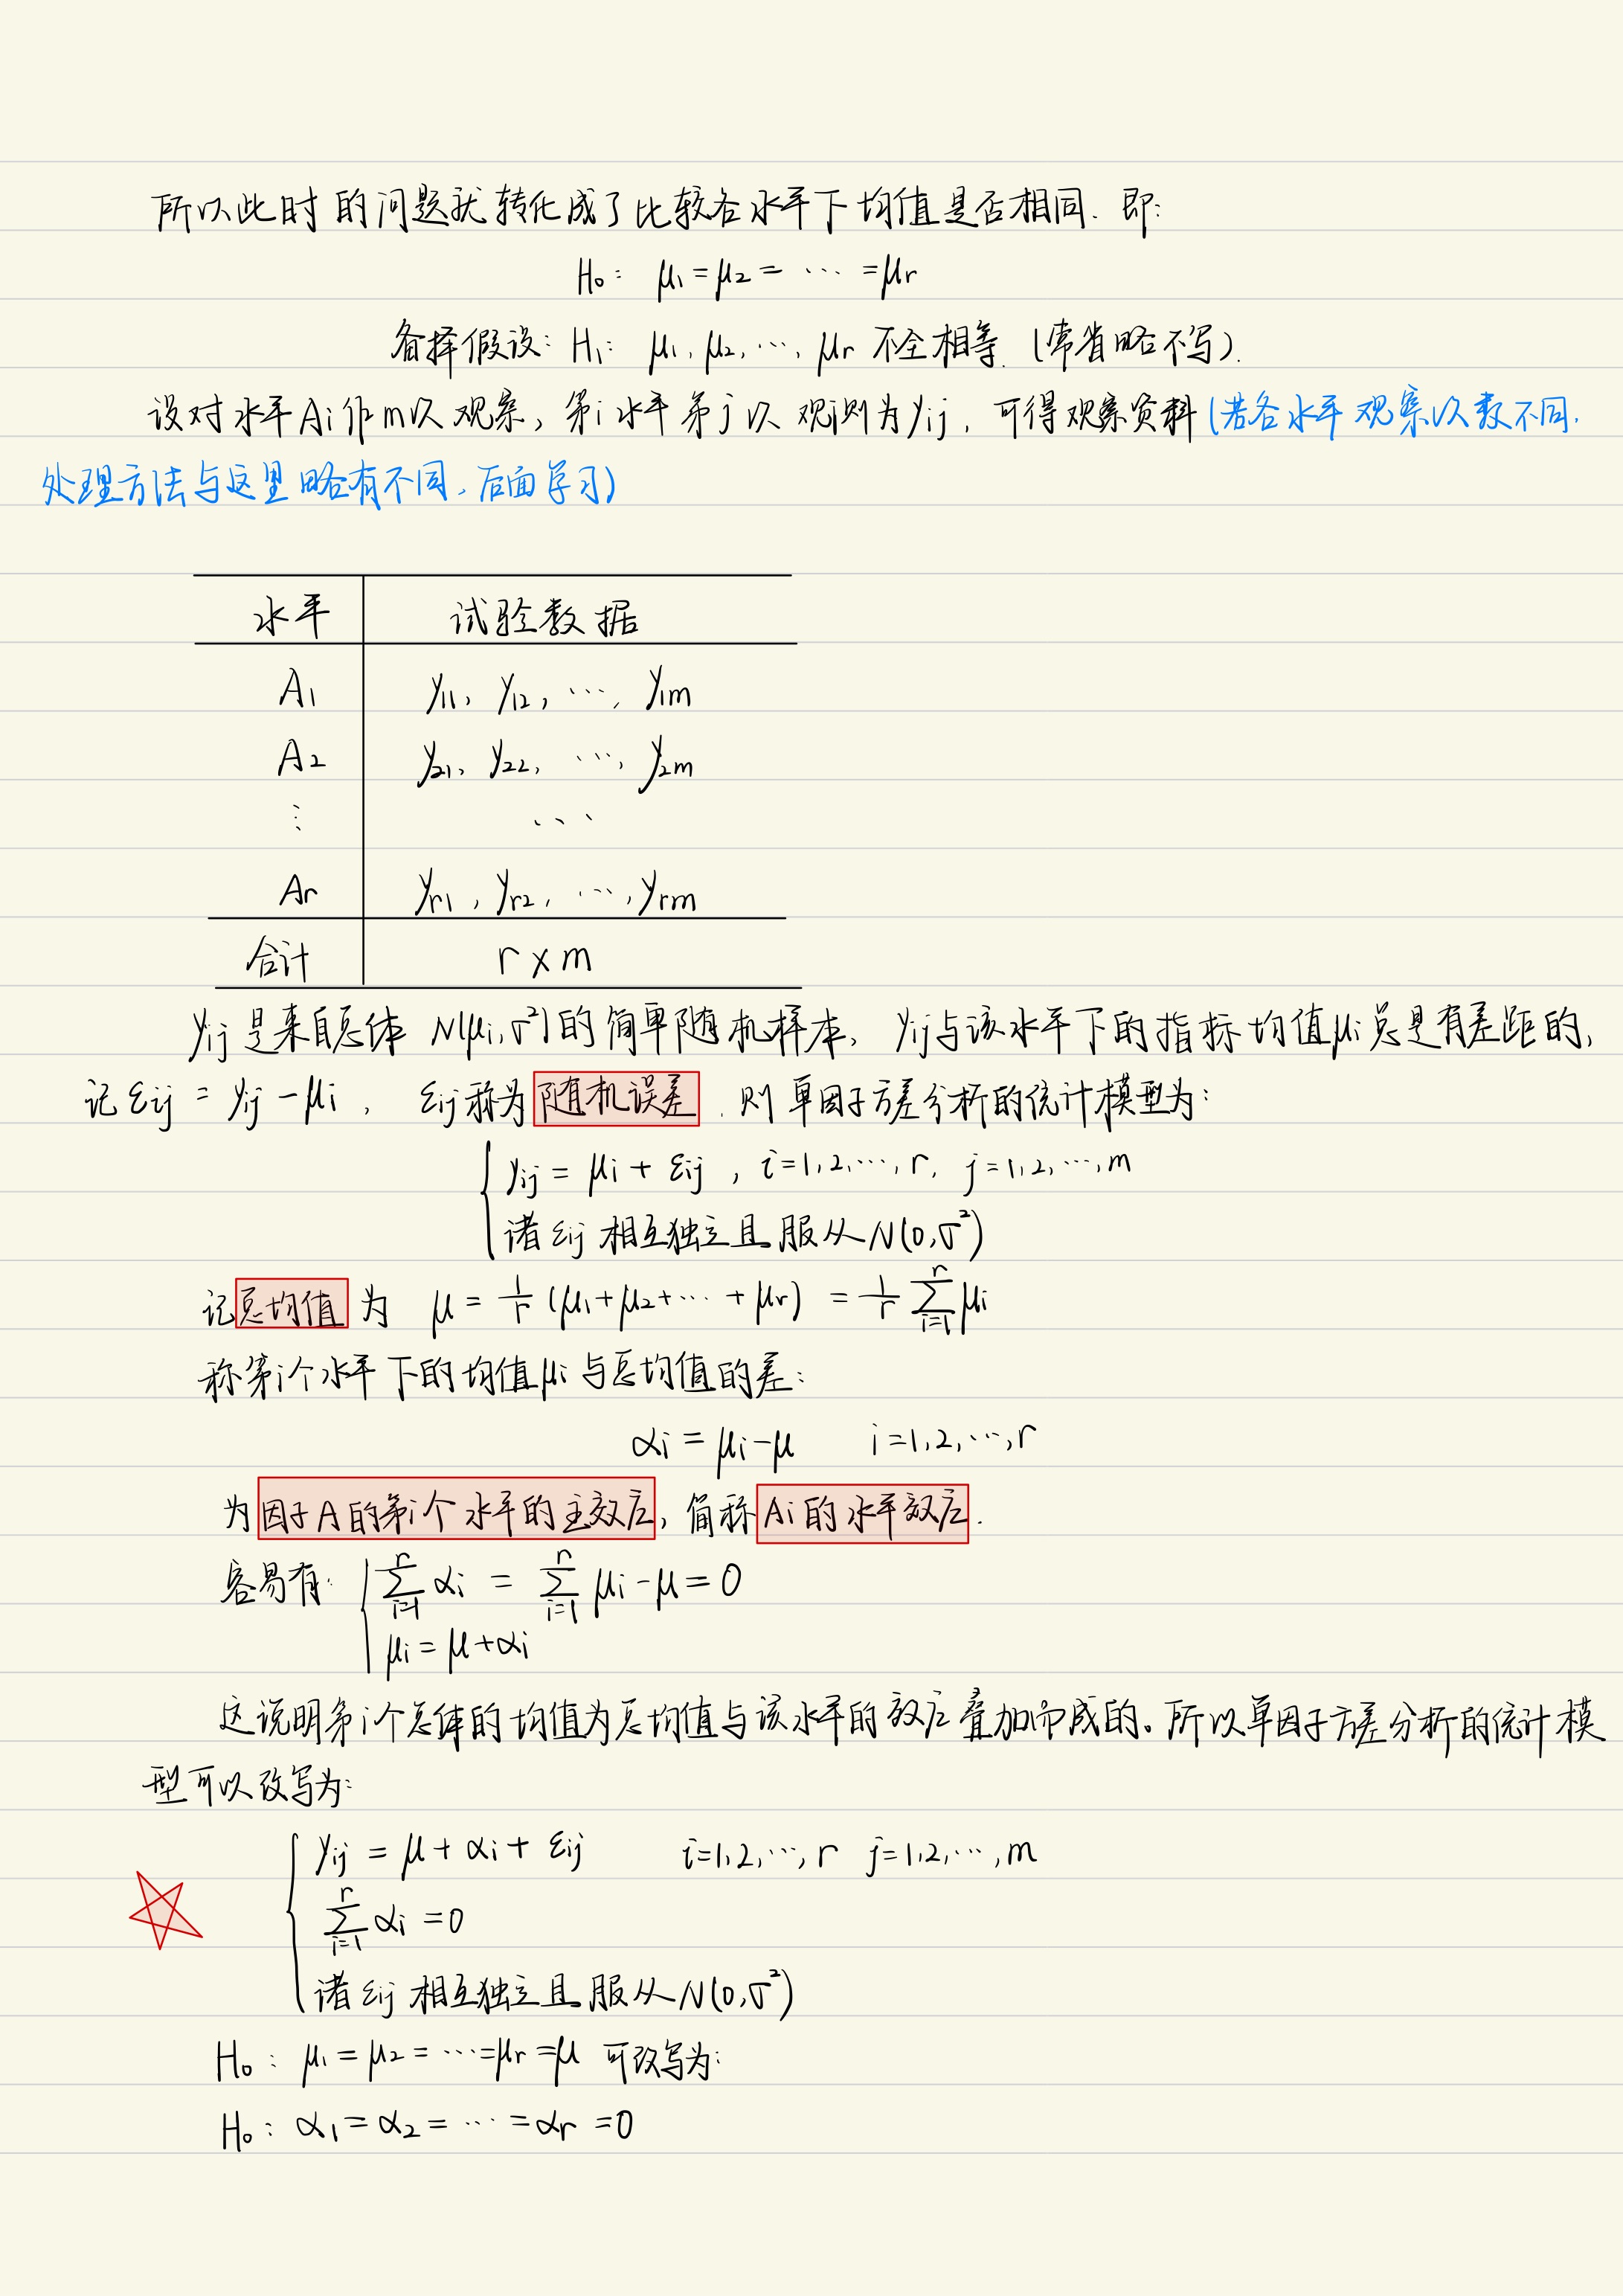 所以此时的问题就转化成了比较各水平下均值是否相同. 即:
H₀: μ₁=μ₂= ⋯ =μr
备择假设: H₁: μ₁, μ₂, ⋯, μr 不全相等. (常省略不写).
设对水平Ai作m次观察, 第i水平第j次观测为yij, 可得观察资料(若各水平观察次数不同.
处理方法与这里略有不同, 后面学习)
水平 试验数据
A₁ y₁₁, y₁₂, ⋯, y₁m
A₂ y₂₁, y₂₂, ⋯, y₂m
⋮ ⋯
Ar yr₁, yr₂, ⋯, yrm
合计 r×m
yij是来自总体 N(μi,σ²)的简单随机样本, yij与该水平下的指标均值μi总是有差距的,
记εij = yij-μi, εij称为随机误差. 则单因子方差分析的统计模型为:
{ yij = μi + εij, i=1,2,⋯,r, j=1,2,⋯,m
诸εij相互独立且服从N(0,σ²)
记总均值为 μ = 1/r (μ₁+μ₂+⋯+μr) = 1/r ∑_{i=1}^{r} μi
称第i个水平下的均值μi与总均值的差:
αi = μi-μ i=1,2,⋯,r
为因子A的第i个水平的主效应, 简称Ai的水平效应.
容易有: { ∑_{i=1}^{r} αi = ∑_{i=1}^{r} μi-μ=0
μi = μ+αi
这说明第i个总体的均值为总均值与该水平的效应叠加而成的。所以单因子方差分析的统计模
型可以改写为:
{ yij = μ + αi + εij i=1,2,⋯,r j=1,2,⋯,m
∑_{i=1}^{r} αi =0
诸εij相互独立且服从N(0,σ²)
H₀: μ₁=μ₂=⋯=μr=μ 可改写为:
H₀: α₁=α₂=⋯=αr=0